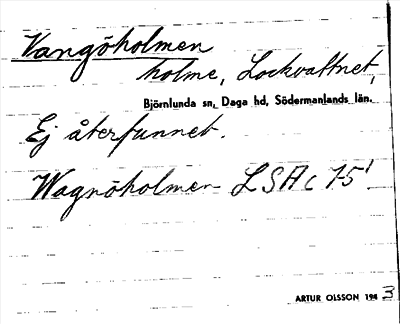 Vangöholmen
holme, Lockvattnet,
Björnlunda sn, Daga hd, Södermanlands län.
Ej återfunnet.
Wagnöholmen LSA c 7-5'
ARTUR OLSSON 1943